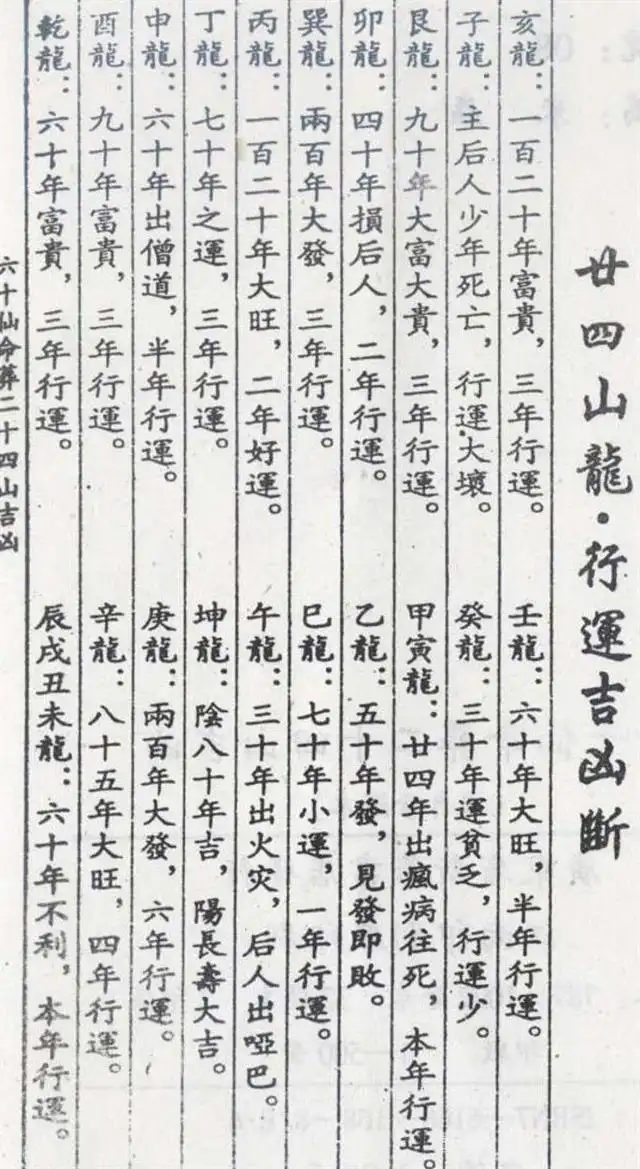 廿四山龍·行運吉凶斷
亥龍：一百二十年富貴，三年行運。
壬龍：六十年大旺，半年行運。
子龍：主后人少年死亡，行運大壞。
癸龍：三十年運貧乏，行運少。
艮龍：九十年大富大貴，三年行運。
甲寅龍：廿四年出瘋病往死，本年行運。
卯龍：四十年損后人，二年行運。
乙龍：五十年發，見發即敗。
巽龍：兩百年大發，三年行運。
巳龍：七十年小運，一年行運。
丙龍：一百二十年大旺，二年好運。
午龍：三十年出火灾，后人出啞巴。
丁龍：七十年之運，三年行運。
坤龍：陰八十年吉，陽長壽大吉。
申龍：六十年出僧道，半年行運。
庚龍：兩百年大發，六年行運。
酉龍：九十年富貴，三年行運。
辛龍：八十五年大旺，四年行運。
乾龍：六十年富貴，三年行運。
辰戌丑未龍：六十年不利，本年行運。
六十仙命葬二十四山吉凶